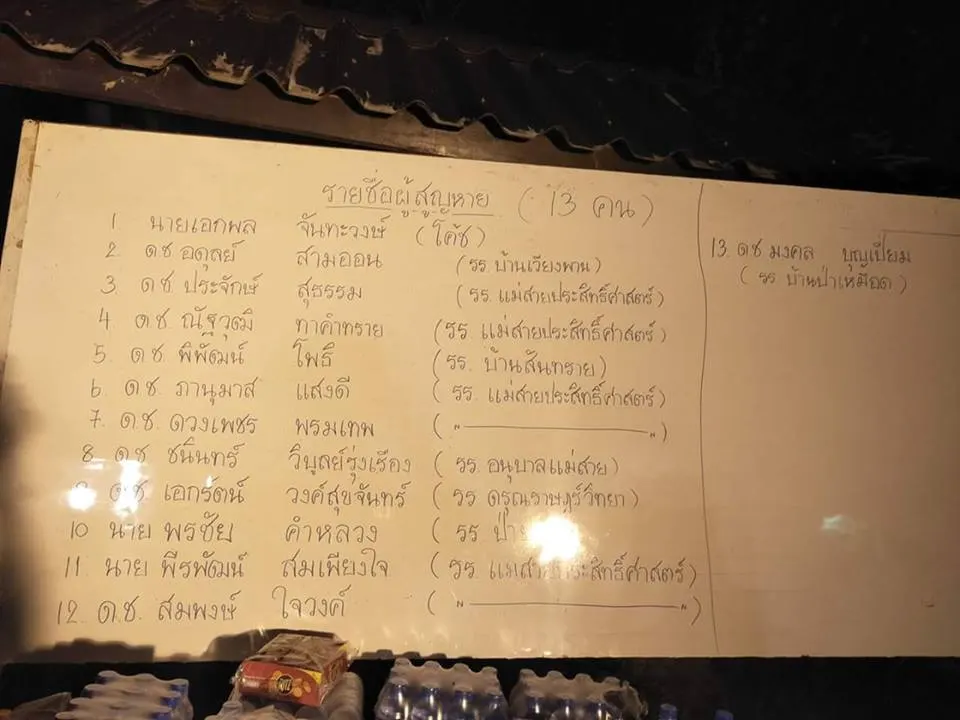 รายชื่อผู้สูญหาย (13 คน)
1 นายเอกพล จันทะวงษ์ (โค้ช)
2 ดช อดุลย์ สามออน (รร. บ้านเวียงพาน)
3 ด.ช ประจักษ์ สุธรรม (รร. แม่สายประสิทธิ์ศาสตร์)
4 ด.ช. ณัฐวุฒิ ทาคำทราย (รร. แม่สายประสิทธิ์ศาสตร์)
5. ด.ช. พิพัฒน์ โพธิ (รร. บ้านสันทราย)
6 ด.ช. ภานุมาส แสงดี (รร. แม่สายประสิทธิ์ศาสตร์)
7. ด.ช. ดวงเพชร พรมเทพ ( " ———— " )
8. ด.ช. ชนินทร์ วิบูลย์รุ่งเรือง (รร. อนุบาลแม่สาย)
9 ด.ช. เอกรัตน์ วงค์สุขจันทร์ (รร ดรุณราษฎร์วิทยา)
10 นาย พรชัย คำหลวง (รร
11. นาย พีรพัฒน์ สมเพียงใจ (รร. แม่สายประสิทธิ์ศาสตร์)
12. ด.ช. สมพงษ์ ใจวงค์ ( " ———— " )
13. ดช มงคล บุญเปี่ยม
(รร บ้านป่าเหมือด)